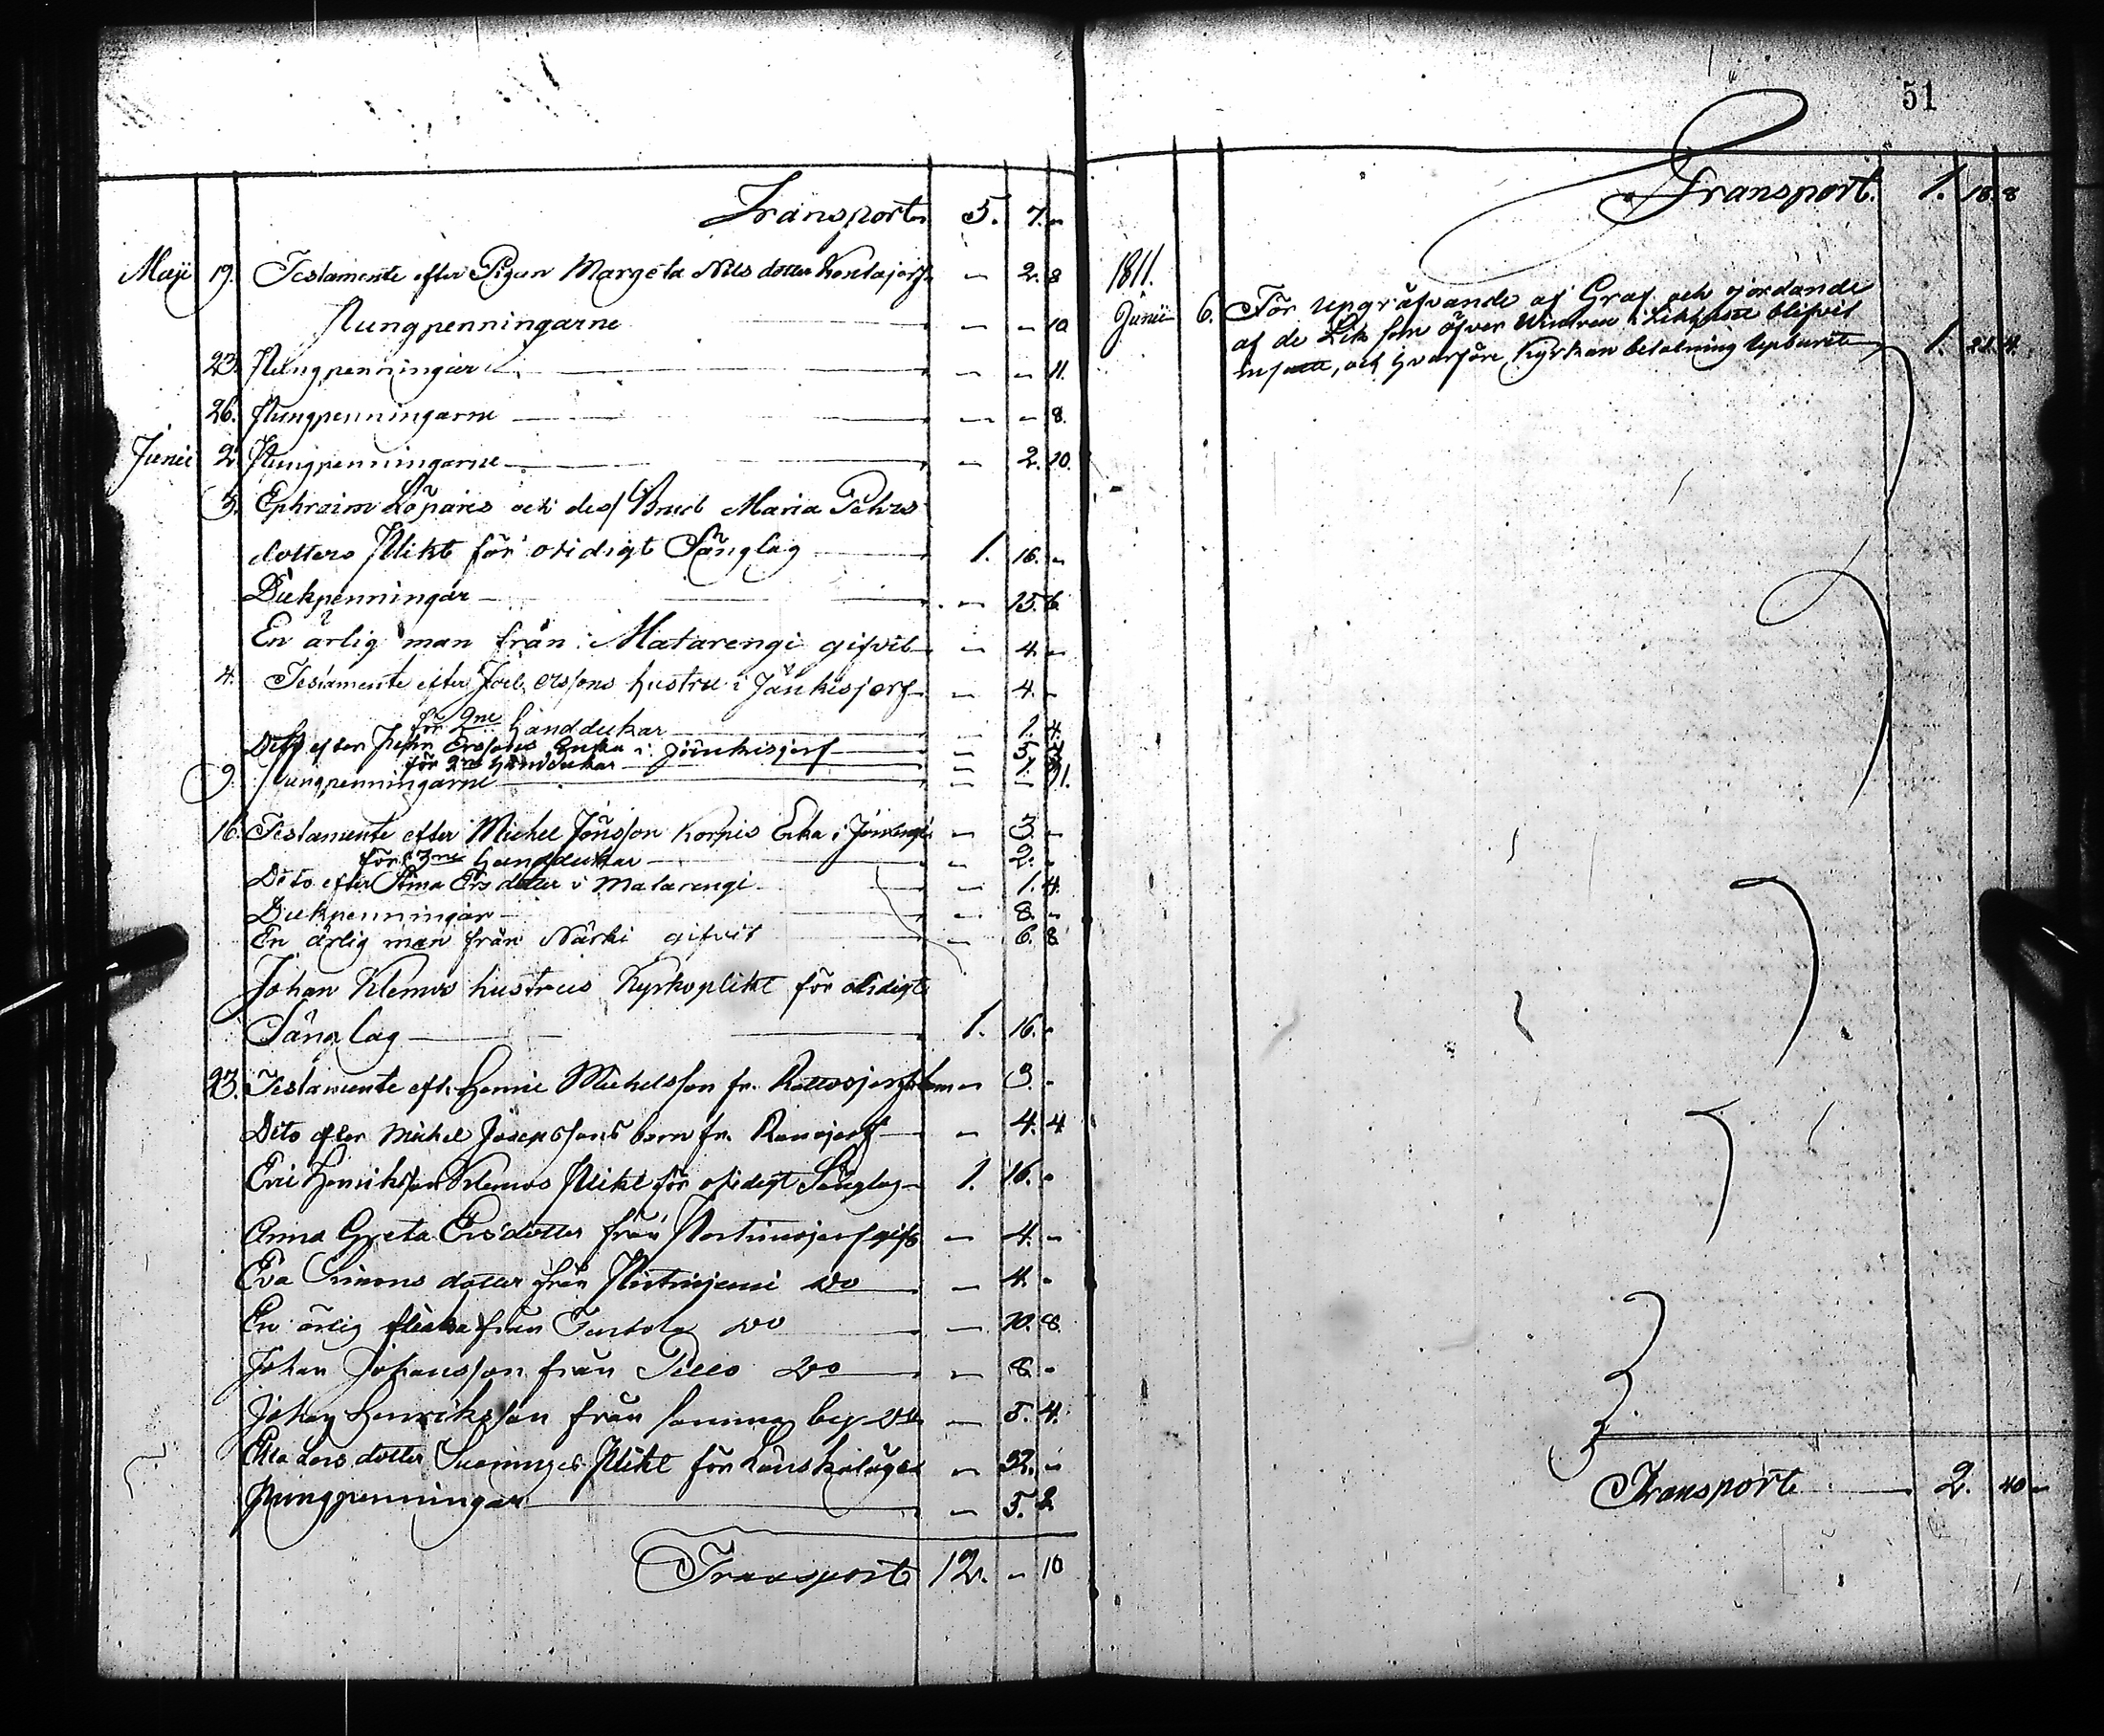 Transport 5. 7. -
Maji 19. Testamente efter Pigan Margeta Nils dotter Kentajerf - 2. 8
Pungpenningarne - - 10
23. Pungpenningar - - 11.
26. Pungpenningarne - - 8.
Junii 2. Pungpenningarne - 2. 10.
3. Ephraim Löparis och dess Brud Maria Pehrs
dotters Plikt för otidigt Sänglag 1. 16. -
Dukpenningar - 15. 6
En ärlig man från Matarengi gifvit - 4. -
4. Testamente efter Joel Ersons hustru i Jänkisjerf - 4. -
för 2ne handdukar - 1. 4.
Dito efter Ersons Enka i Jänkisjerf - 5.
för 2ne Handdukar - 1.
9. Pungpenningarne - - 11.
16. Testamente efter Michel Jönsson Korpis Enka i - 3. -
för 3ne handdukar - 2. -
Dito efter Stina Ersdotter i Matarengi - 1. 4.
Dukpenningar - 8. -
En ärlig man från Närki gifvit - 6. 8
Johan Klemos hustrus Kyrkoplikt för otidigt
Sänglag 1. 16. -
23. Testamente eft. Henric Michelsson fr. - 3. -
Dito efter Michel Josepssons barn fr. - 4. 4
Eric Henriksson Klemos Plikt för otidigt Sänglag 1. 16. -
Anna Greta Ersdotter från Portimojerf gifv - 4. -
Eva Simons dotter från do - 4. -
En ärlig flicka från Turtola do - 10. 8.
Johan Johansson från Pello do - 8. -
Johan Henriksson från samma by do - 5. 4.
Lars dotter Plikt för Lönskaläger - 32. -
Pungpenningar - 5. 2
Transport 12. - 10
51
Transport 1. 18. 8
1811.
Junii 6. För upgräfvande af Graf och jordande
af de Lik som öfver Wintren i Likhuset blifvit
insatte, och hvarföre Kyrkan betalning upburit 1. 21. 4.
Transport 2. 40 -